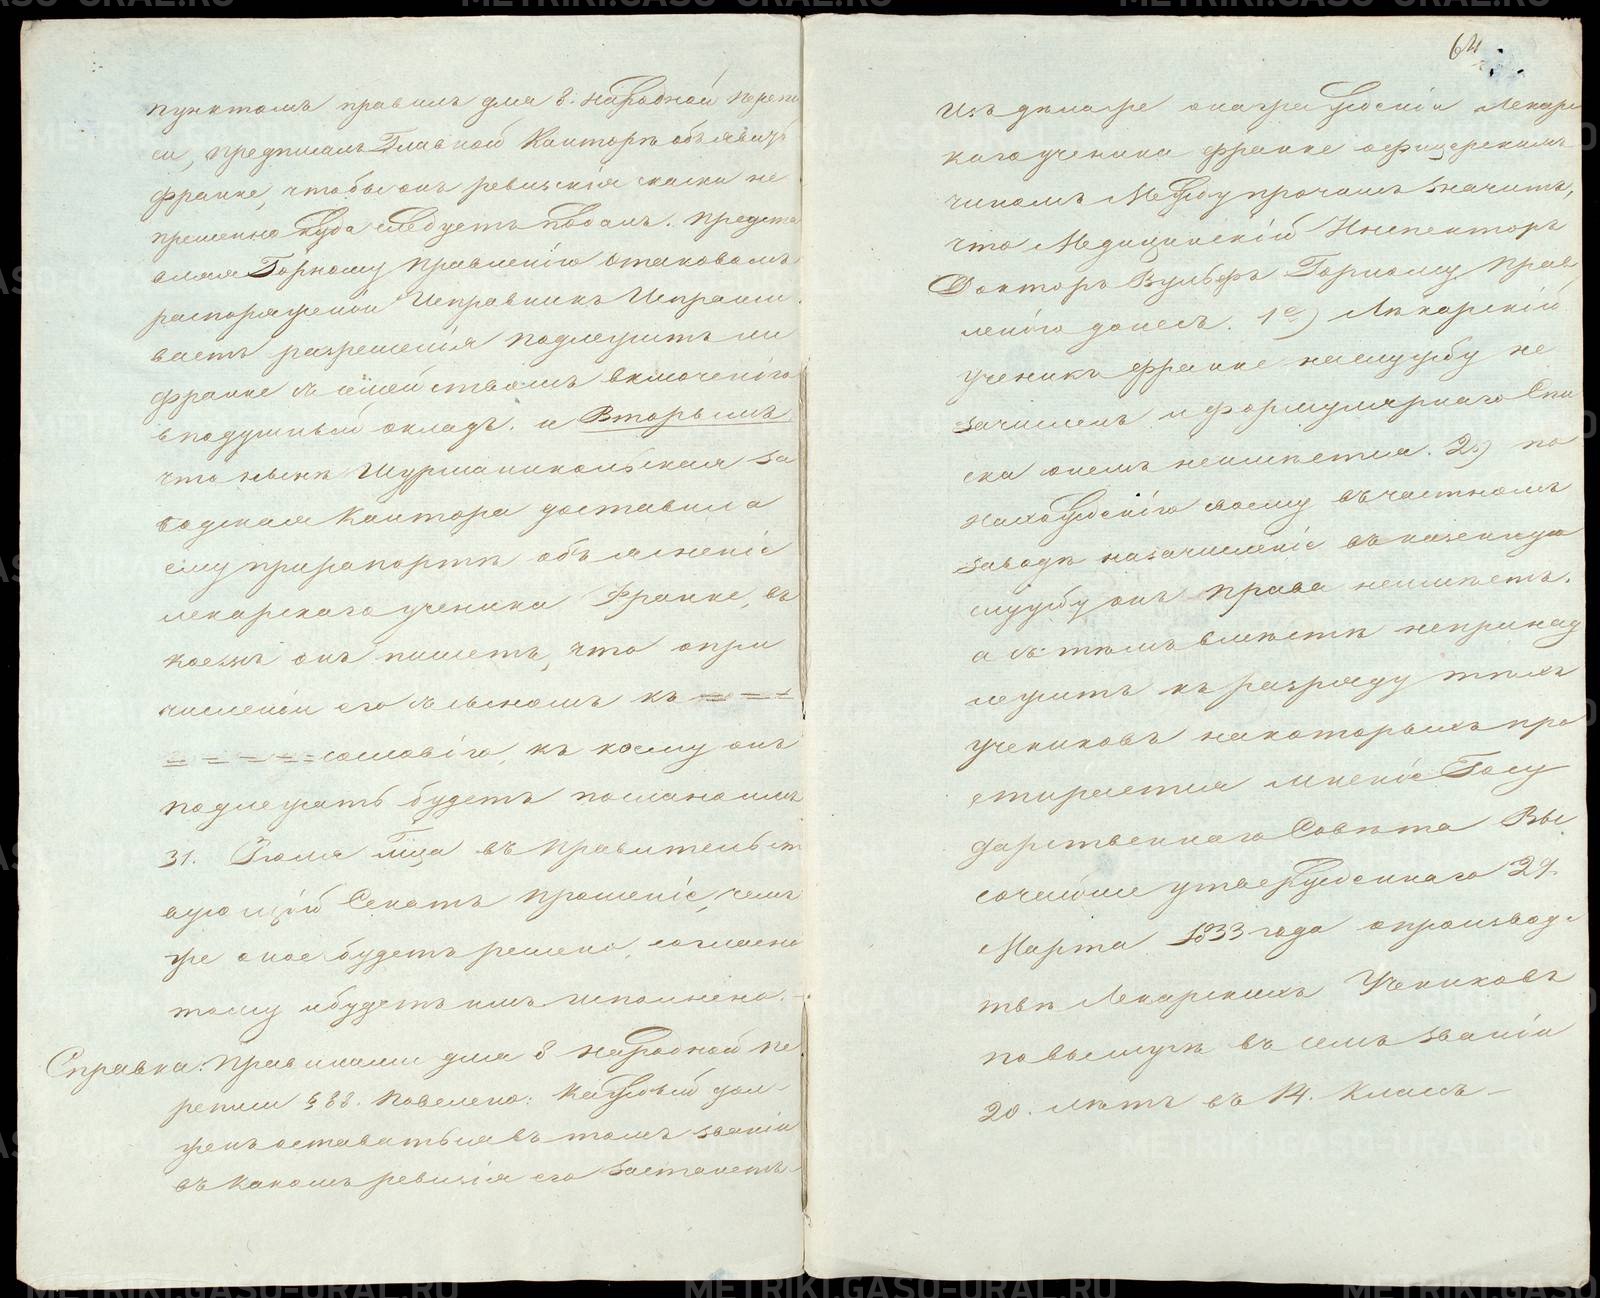 пунктомъ правилъ для 8. народной перепи
си, предписалъ Главной Конторѣ объявить
Франке, чтобы онъ ревизскія сказки не
пременно куда следуетъ подалъ. Предста
вляя Горному Правленію отаковомъ
распоряженіи Исправникъ Испраши
ваетъ разрешенія подлежитъ ли
Франке съ семействомъ включенію
въ подушный окладъ. и Вторымъ
что нынѣ Шурманикольская За
водская Контора доставила
ему при рапортѣ объясненіе
лекарскаго ученика Франке, въ
коемъ онъ пишетъ, что опри
численіи его съ сыномъ къ = = =
= = = = = сословію, къ коему онъ
подлежать будетъ посланоимъ
31. Іюля въ Правительст
вующій Сенатъ прошеніе, чемъ
же оное будетъ решено, согласно
тому ибудетъ имъ исполнено. -
Справка: Правилами для 8 народной пе
реписи § 88. Повелено: Каждый дол-
женъ оставаться въ томъ званіи
въ какомъ ревизія его застанетъ-
64
Изъ дела же онагражденіи Лекарс
каго ученика Франке офицерскимъ
чиномъ Между прочимъ значитъ,
что Медицинскій Инспекторъ
Докторъ Вульфъ Горному Прав
ленію донесъ. 1е) Лѣкарскій
ученикъ Франке наслужбу не
зачисленъ и формулярнаго Спи
ска онемъ неимѣется. 2е) по
нахожденію своему въ частномъ
заводѣ назачисленіе въ казенную
службу онъ права неимѣетъ.
а съ тѣмъ вмѣстѣ непринад
лежитъ къ разряду тѣхъ
учениковъ накоторыхъ про
стирается мненіе Госу
дарственнаго Совѣта Вы
сочайше утвержденнаго 29.
Марта 1833 года опроизводс
твѣ Лекарскихъ Учениковъ
повыслугѣ въ семъ званіи
20. лѣтъ въ 14. Классъ -
METRIKI.GASO-URAL.RU